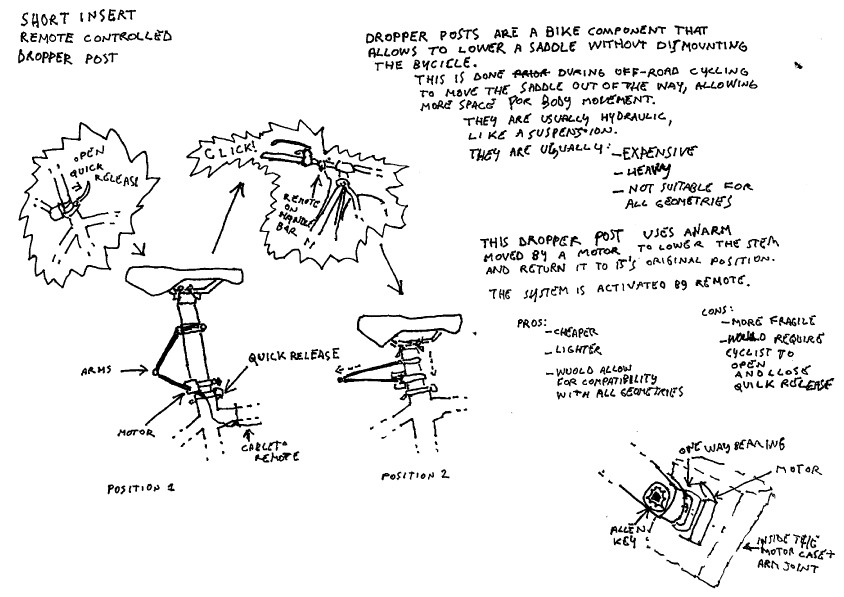 SHORT INSERT
REMOTE CONTROLLED
DROPPER POST
DROPPER POSTS ARE A BIKE COMPONENT THAT
ALLOWS TO LOWER A SADDLE WITHOUT DISMOUNTING
THE BYCICLE.
THIS IS DONE PRIOR DURING OFF-ROAD CYCLING
TO MOVE THE SADDLE OUT OF THE WAY, ALLOWING
MORE SPACE FOR BODY MOVEMENT.
THEY ARE USUALLY HYDRAULIC,
LIKE A SUSPENSION.
THEY ARE USUALLY: - EXPENSIVE
- HEAVY
- NOT SUITABLE FOR
ALL GEOMETRIES
OPEN
QUICK
RELEASE
CLICK!
REMOTE
ON
HANDLE
BAR
THIS DROPPER POST USES AN ARM
MOVED BY A MOTOR TO LOWER THE STEM
AND RETURN IT TO IT'S ORIGINAL POSITION.
THE SYSTEM IS ACTIVATED BY REMOTE.
PROS:
- CHEAPER
- LIGHTER
- WOULD ALLOW
FOR COMPATIBILITY
WITH ALL GEOMETRIES
CONS:
- MORE FRAGILE
- WOULD REQUIRE
CYCLIST TO
OPEN
AND CLOSE
QUICK RELEASE
ARMS
QUICK RELEASE
MOTOR
CABLE TO
REMOTE
POSITION 1
POSITION 2
ONE WAY BEARING
MOTOR
ALLEN
KEY
INSIDE THE
MOTOR CASE +
ARM JOINT